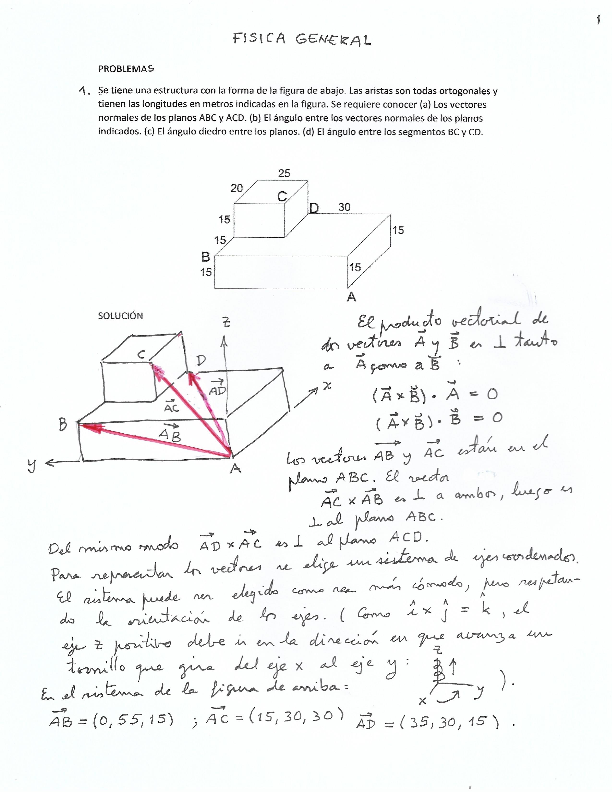 1
FISICA GENERAL
PROBLEMAS
1. Se tiene una estructura con la forma de la figura de abajo. Las aristas son todas ortogonales y
tienen las longitudes en metros indicadas en la figura. Se requiere conocer (a) Los vectores
normales de los planos ABC y ACD. (b) El ángulo entre los vectores normales de los planos
indicados. (c) El ángulo diedro entre los planos. (d) El ángulo entre los segmentos BC y CD.
25
20
C
D 30
15
15
15
B
15
15
A
SOLUCIÓN
z
C
D
AD
x
AC
B
AB
y
A
El producto vectorial de
dos vectores A⃗ y B⃗ es ⊥ tanto
a A⃗ como a B⃗ :
(A⃗ × B⃗) · A⃗ = 0
(A⃗ × B⃗) · B⃗ = 0
Los vectores AB y AC están en el
plano ABC. El vector
AC × AB es ⊥ a ambos, luego es
⊥ al plano ABC.
Del mismo modo AD × AC es ⊥ al plano ACD.
Para representar los vectores se elige un sistema de ejes coordenados.
El sistema puede ser elegido como sea más cómodo, pero respetan-
do la orientación de los ejes. ( Como î × ĵ = k̂, el
eje z positivo debe ir en la dirección en que avanza un
tornillo que gira del eje x al eje y :
z
x y ).
En el sistema de la figura de arriba:
AB = (0, 55, 15) ; AC = (15, 30, 30) AD = (35, 30, 15) .